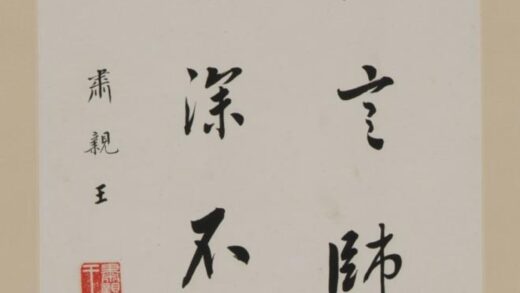 言師
深不
肅親王